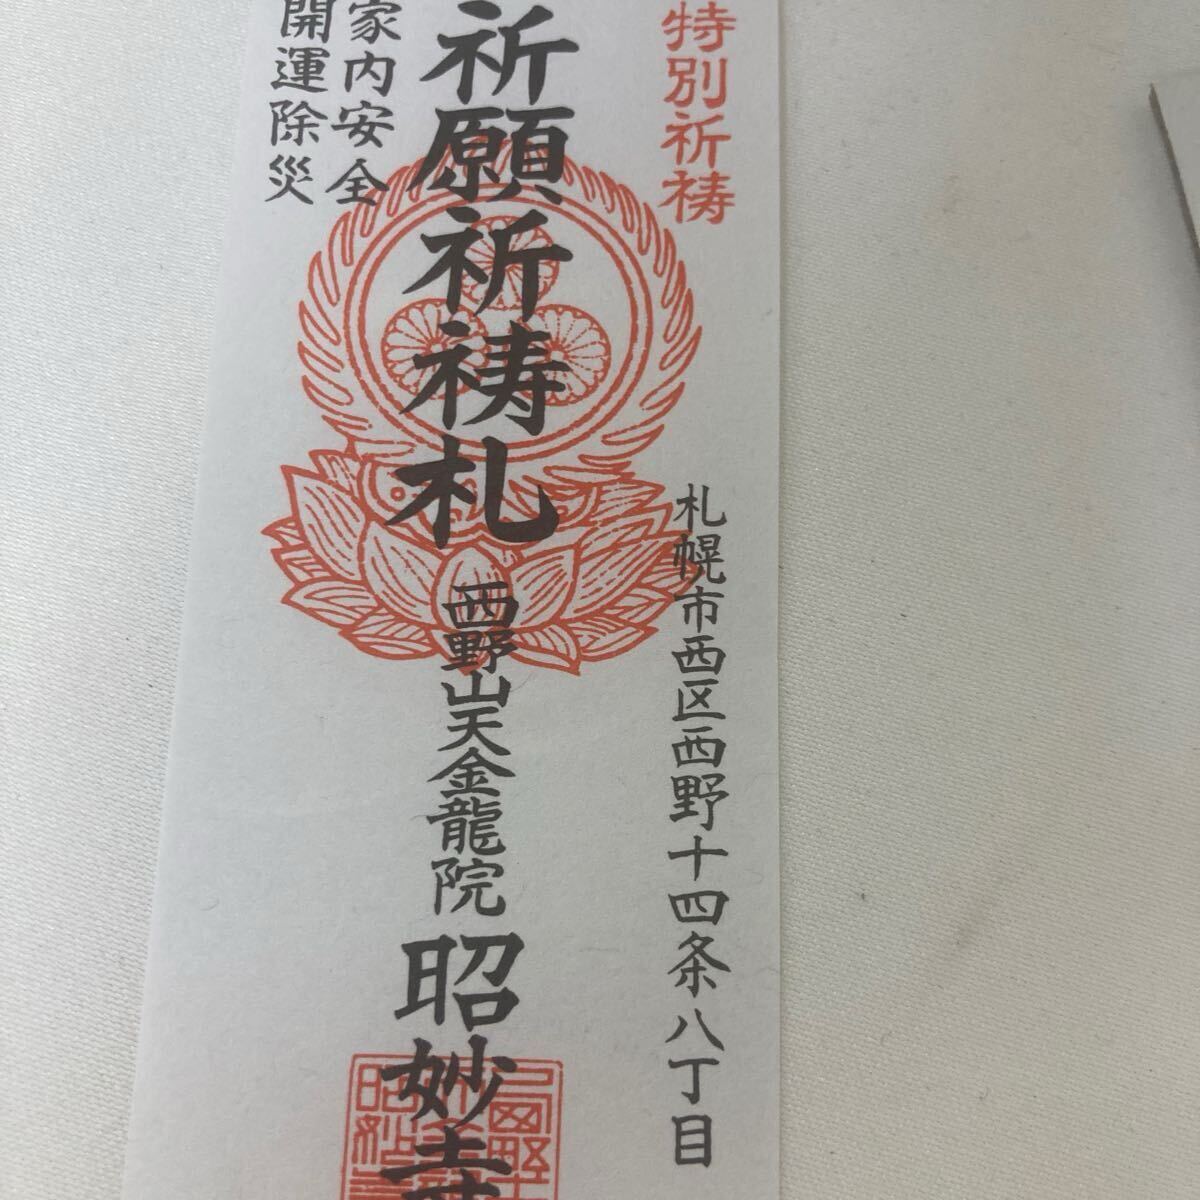 特別祈祷
札幌市西区西野十四条八丁目
祈願祈祷札
西野山天金龍院 昭妙寺
家内安全
開運除災